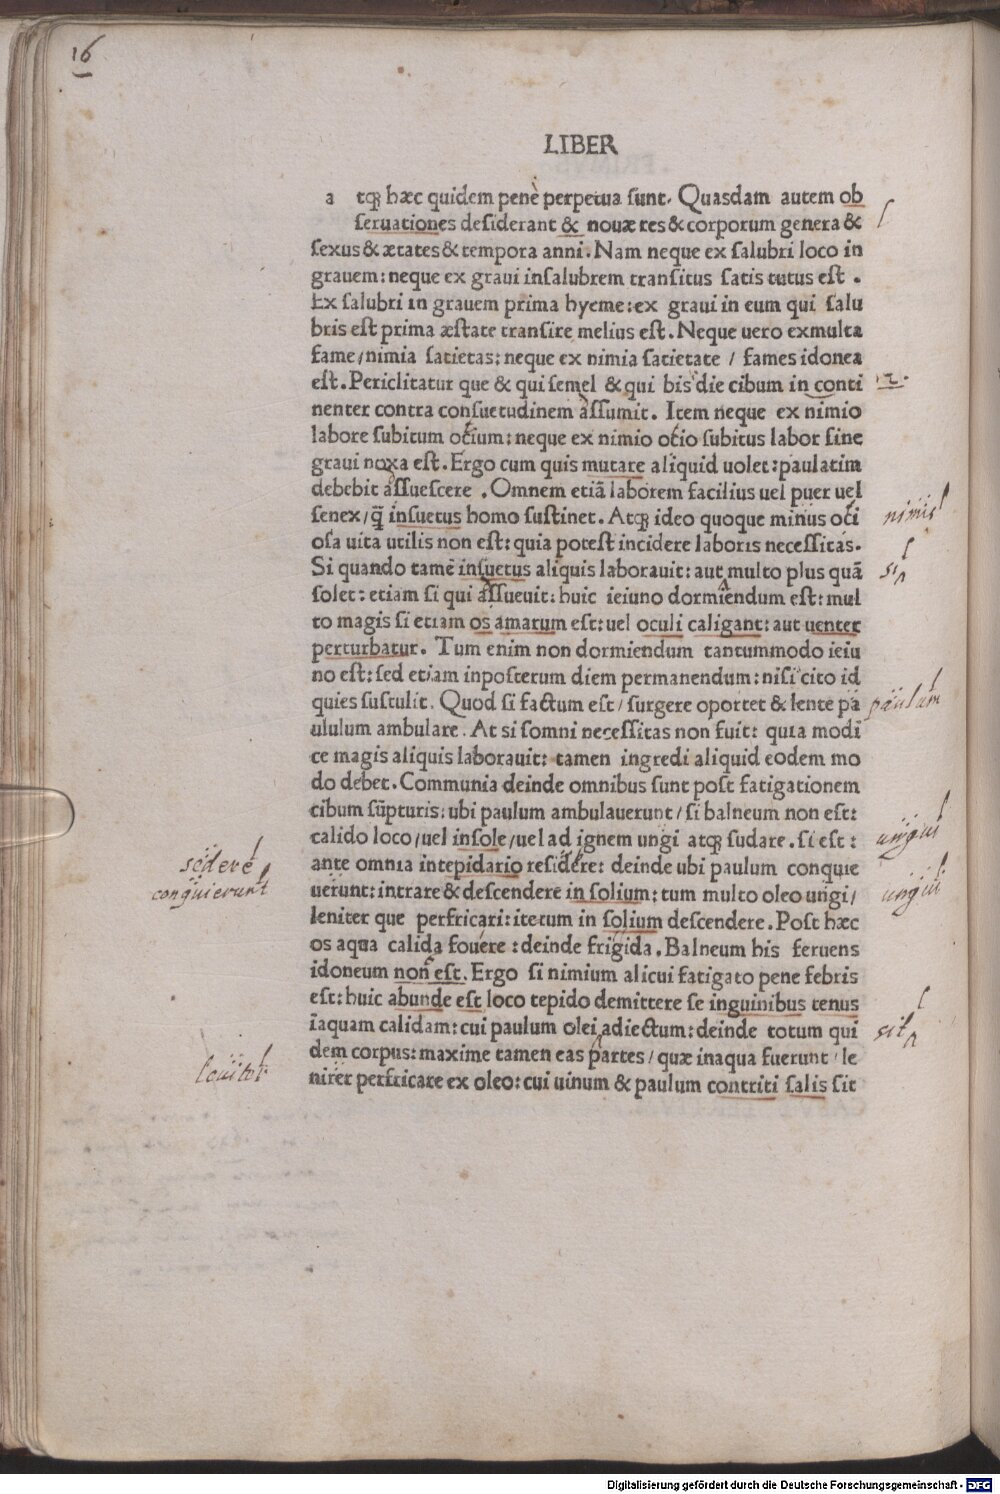 16
LIBER
a tqꝫ hæc quidem pene perpetua sunt. Quasdam autem ob
seruationes desiderant & nouæ res & corporum genera &
sexus & ætates & tempora anni. Nam neque ex salubri loco in
grauem: neque ex graui insalubrem transitus satis tutus est .
Ex salubri in grauem prima hyeme: ex graui in eum qui salu
bris est prima æstate transire melius est. Neque uero exmulta
fame/nimia satietas: neque ex nimia satietate / fames idonea
est. Periclitatur que & qui semel & qui bis die cibum in conti
nenter contra consuetudinem assumit. Item neque ex nimio
labore subitum ocium: neque ex nimio ocio subitus labor sine
graui noxa est. Ergo cum quis mutare aliquid uolet: paulatim
debebit assuescere . Omnem etiā laborem facilius uel puer uel
senex/q̄ insuetus homo sustinet. Atqꝫ ideo quoque minus oci
osa uita utilis non est: quia potest incidere laboris necessitas.
Si quando tamē insuetus aliquis laborauit: aut multo plus quā
solet: etiam si qui assueuit: huic ieiuno dormiendum est: mul
to magis si etiam os amarum est: uel oculi caligant: aut uenter
perturbatur. Tum enim non dormiendum tantummodo ieiu
no est: sed etiam inposterum diem permanendum: nisi cito id
quies sustulit. Quod si factum est/surgere oportet & lente pa
ululum ambulare. At si somni necessitas non fuit: quia modi
ce magis aliquis laborauit: tamen ingredi aliquid eodem mo
do debet. Communia deinde omnibus sunt post fatigationem
cibum sūpturis: ubi paulum ambulauerunt/si balneum non est:
calido loco/uel insole/uel ad ignem ungi atqꝫ sudare. si est:
ante omnia intepidario residere: deinde ubi paulum conquie
uerunt: intrare & descendere in solium: tum multo oleo ungi/
leniter que perfricari: iterum in solium descendere. Post hæc
os aqua calida fouere: deinde frigida. Balneum his feruens
idoneum non est. Ergo si nimium alicui fatigato pene febris
est: huic abunde est loco tepido demittere se inguinibus tenus
īaquam calidam: cui paulum olei adiectum: deinde totum qui
dem corpus: maxime tamen eas partes/quæ inaqua fuerunt/le
niter perfricare ex oleo: cui uinum & paulum contriti salis sit
nimis
paulum
ungui
ungui
sit
sedere
conquierunt
Digitalisierung gefördert durch die Deutsche Forschungsgemeinschaft - DFG